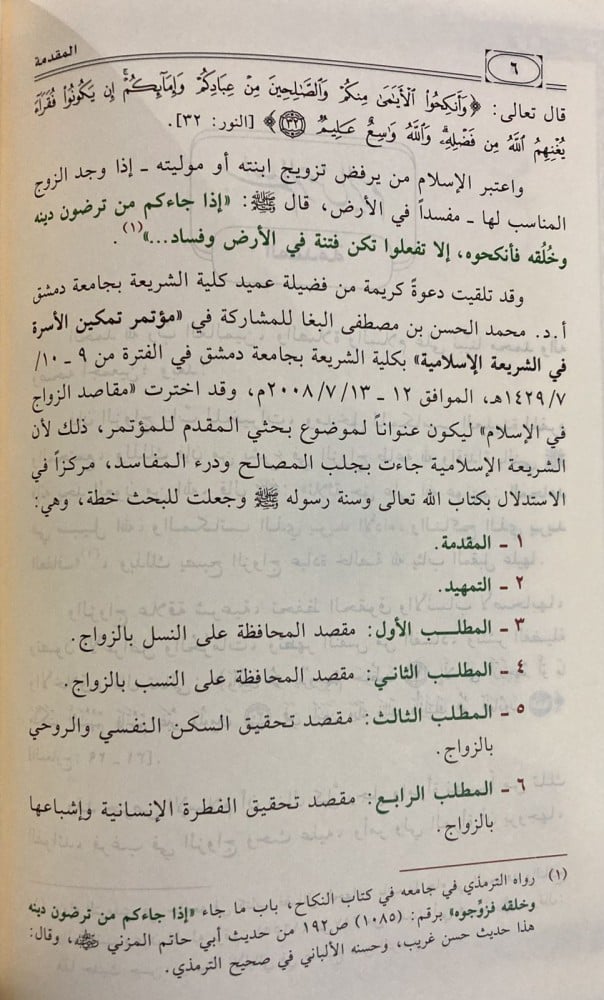 ٦
المقدمة
قال تعالى: ﴿وَأَنكِحُوا۟ ٱلْأَيَـٰمَىٰ مِنكُمْ وَٱلصَّـٰلِحِينَ مِنْ عِبَادِكُمْ وَإِمَآئِكُمْ ۚ إِن يَكُونُوا۟ فُقَرَآءَ
يُغْنِهِمُ ٱللَّهُ مِن فَضْلِهِۦ ۗ وَٱللَّهُ وَٰسِعٌ عَلِيمٌ ﴿٣٢﴾﴾ [النور: ٣٢].
واعتبر الإسلام من يرفض تزويج ابنته أو موليته ـ إذا وجد الزوج
المناسب لها ـ مفسداً في الأرض، قال ﷺ: «إذا جاءكم من ترضون دينه
وخُلُقه فأنكحوه، إلا تفعلوا تكن فتنة في الأرض وفساد...»(١).
وقد تلقيت دعوةً كريمة من فضيلة عميد كلية الشريعة بجامعة دمشق
أ.د. محمد الحسن بن مصطفى البغا للمشاركة في «مؤتمر تمكين الأسرة
في الشريعة الإسلامية» بكلية الشريعة بجامعة دمشق في الفترة من ٩ ـ ١٠/
١٤٢٩/٧هـ، الموافق ١٢ ـ ٢٠٠٨/٧/١٣م، وقد اخترت «مقاصد الزواج
في الإسلام» ليكون عنواناً لموضوع بحثي المقدم للمؤتمر، ذلك لأن
الشريعة الإسلامية جاءت بجلب المصالح ودرء المفاسد، مركزاً في
الاستدلال بكتاب الله تعالى وسنة رسوله ﷺ وجعلت للبحث خطة، وهي:
١ ـ المقدمة.
٢ ـ التمهيد.
٣ ـ المطلب الأول: مقصد المحافظة على النسل بالزواج.
٤ ـ المطلب الثاني: مقصد المحافظة على النسب بالزواج.
٥ ـ المطلب الثالث: مقصد تحقيق السكن النفسي والروحي
بالزواج.
٦ ـ المطلب الرابع: مقصد تحقيق الفطرة الإنسانية وإشباعها
بالزواج.
(١) رواه الترمذي في جامعه في كتاب النكاح، باب ما جاء «إذا جاءكم من ترضون دينه
وخلقه فزوِّجوه» برقم: (١٠٨٥) ص١٩٢ من حديث أبي حاتم المزني رضي الله عنه، وقال:
هذا حديث حسن غريب، وحسنه الألباني في صحيح الترمذي.